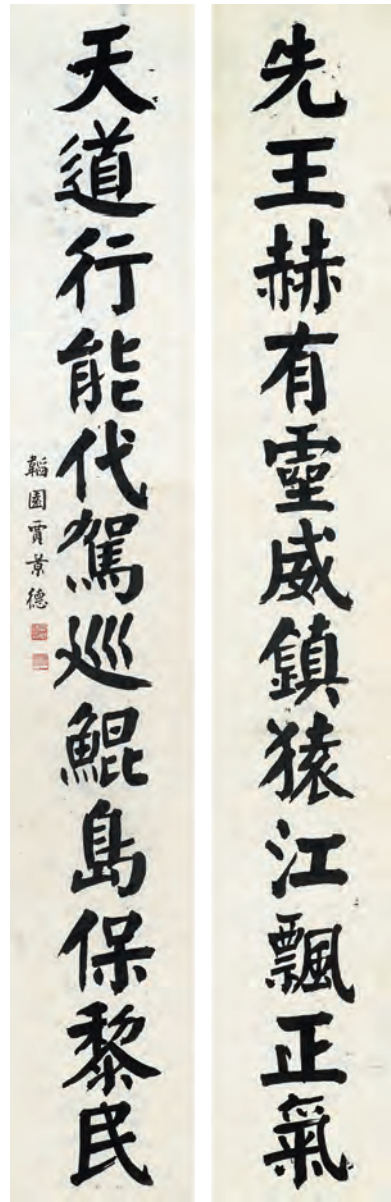 先王赫有靈威鎮猿江飄正氣
天道行能代駕巡鯤島保黎民
韜園賈景德